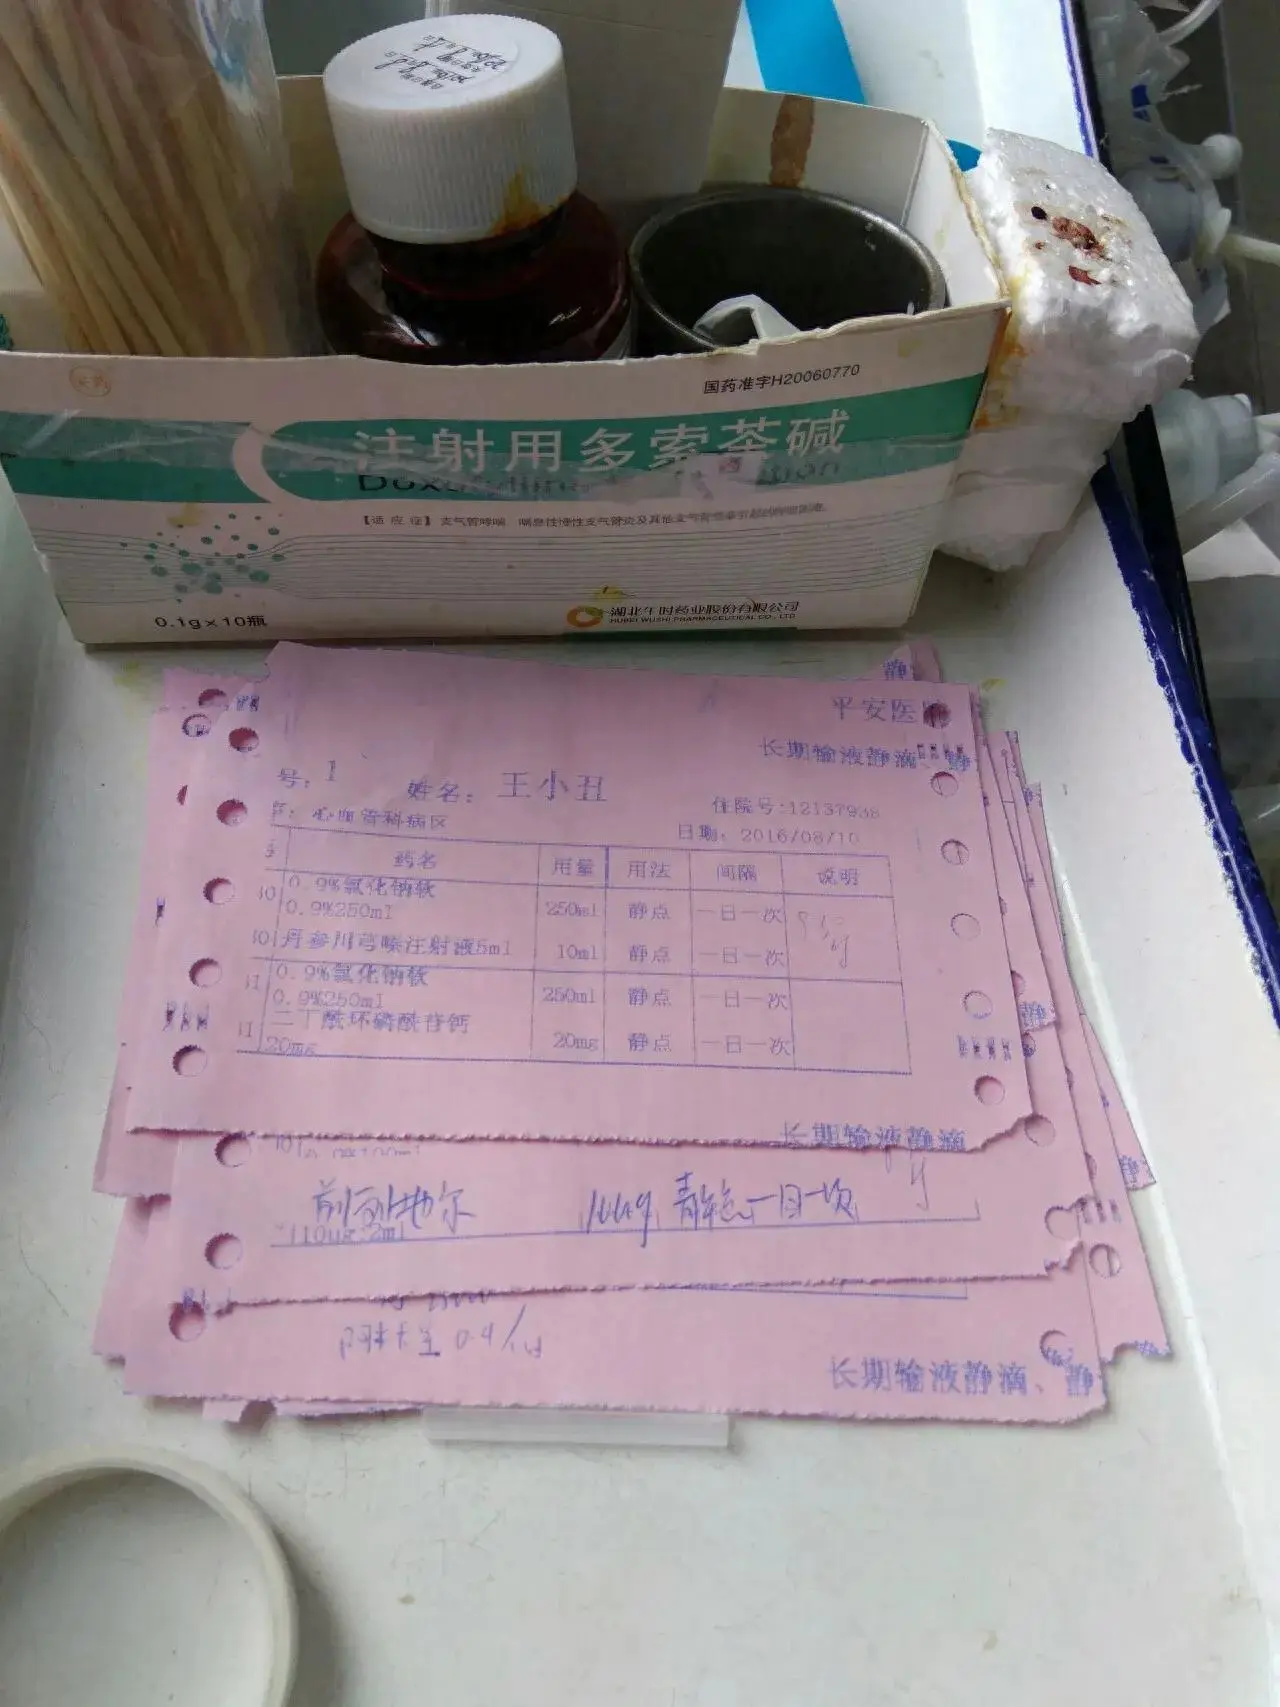 国药准字H20060770
注射用多索茶碱
【适应症】支气管哮喘 喘息性慢性支气管炎及其他支气管痉挛引起的呼吸困难。
0.1g×10瓶
湖北午时药业股份有限公司
HUBEI WUSHI PHARMACEUTICAL CO., LTD
静
平安医
长期输液静滴、静
号: 1 姓名: 王小丑
住院号:12137938
心血管科病区
日期: 2016/08/10
药名 用量 用法 间隔 说明
0.9%氯化钠软
0.9%250ml 250ml 静点 一日一次
丹参川芎嗪注射液5ml 10ml 静点 一日一次
0.9%氯化钠软
0.9%250ml 250ml 静点 一日一次
二丁酰环磷酰苷钙
20mg 20mg 静点 一日一次
静
长期输液静滴
前列地尔 静点 一日一次
110ug:2ml
0.4
长期输液静滴、静
静